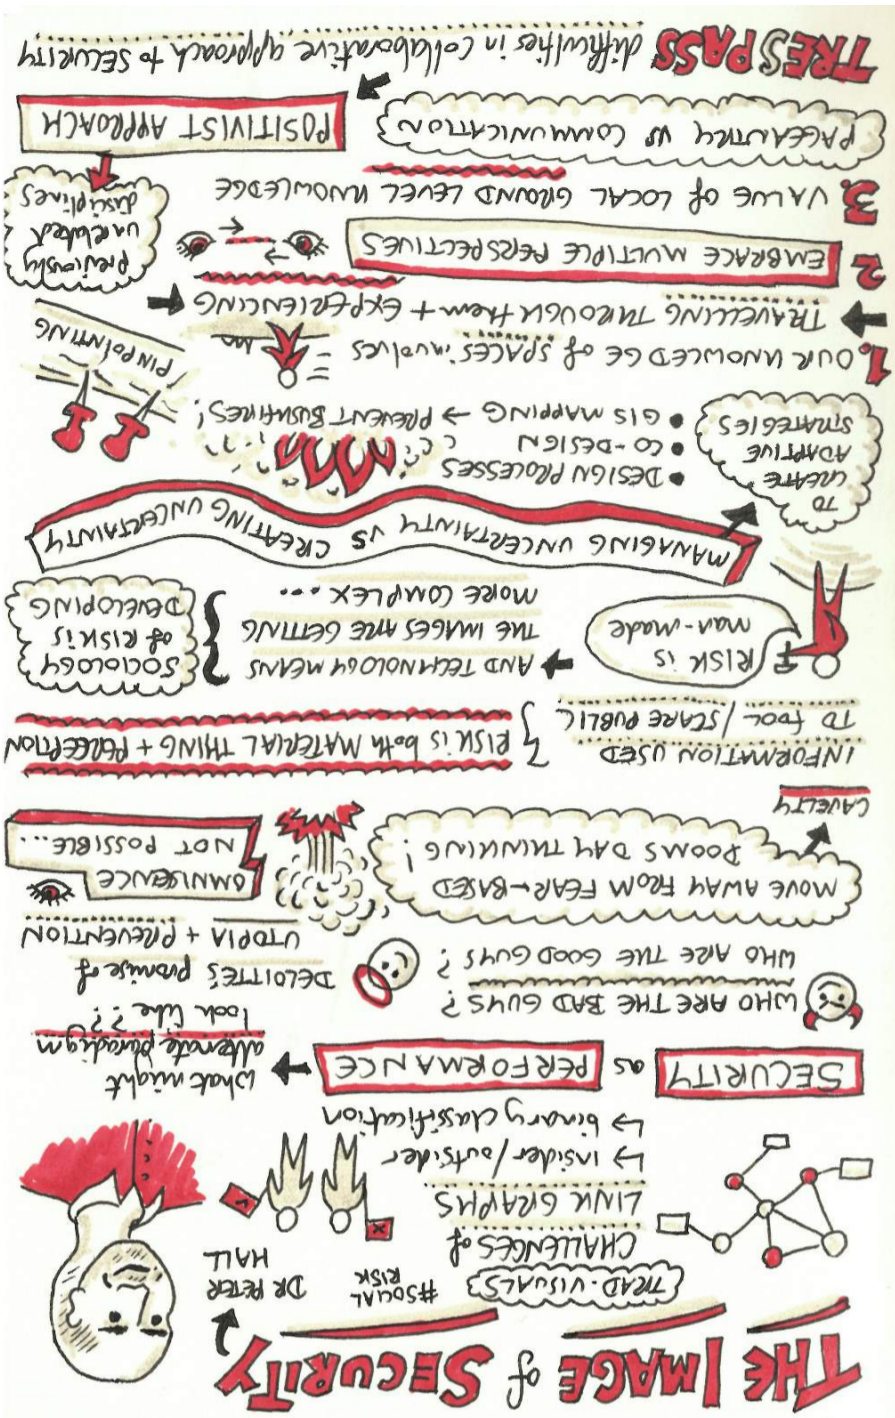 THE IMAGE of SECURITY
TRAD. VISUALS
#SOCIAL
RISK
DR PETER
HALL
CHALLENGES of
LINK GRAPHS
↳ insider/outsider
↳ binary classification
SECURITY as PERFORMANCE
what might
alternate paradigm
look like??
WHO ARE THE BAD GUYS?
WHO ARE THE GOOD GUYS?
DELOITTE'S promise of
UTOPIA + PREVENTION
OMNISCENCE
NOT POSSIBLE...
MOVE AWAY FROM FEAR-BASED
DOOMS DAY THINKING!
CAVELTY
INFORMATION USED
TO FOOL/SCARE PUBLIC
RISK is both MATERIAL THING + PERCEPTION
RISK is
man-made
AND TECHNOLOGY MEANS
THE IMAGES ARE GETTING
MORE COMPLEX....
SOCIOLOGY
of RISK is
DEVELOPING
MANAGING UNCERTAINTY VS CREATING UNCERTAINTY
TO
CREATE
ADAPTIVE
STRATEGIES
• DESIGN PROCESSES
• CO-DESIGN
• GIS MAPPING → PREVENT BUSHFIRES!
PINPOINTING
1. OUR KNOWLEDGE of SPACES involves
TRAVELLING THROUGH them + EXPERIENCING
2 EMBRACE MULTIPLE PERSPECTIVES
3. VALUE of LOCAL GROUND LEVEL KNOWLEDGE
previously
unrelated
disciplines
PAGEANTRY VS COMMUNICATION
POSITIVIST APPROACH
TRESPASS difficulties in collaborative approach to SECURITY